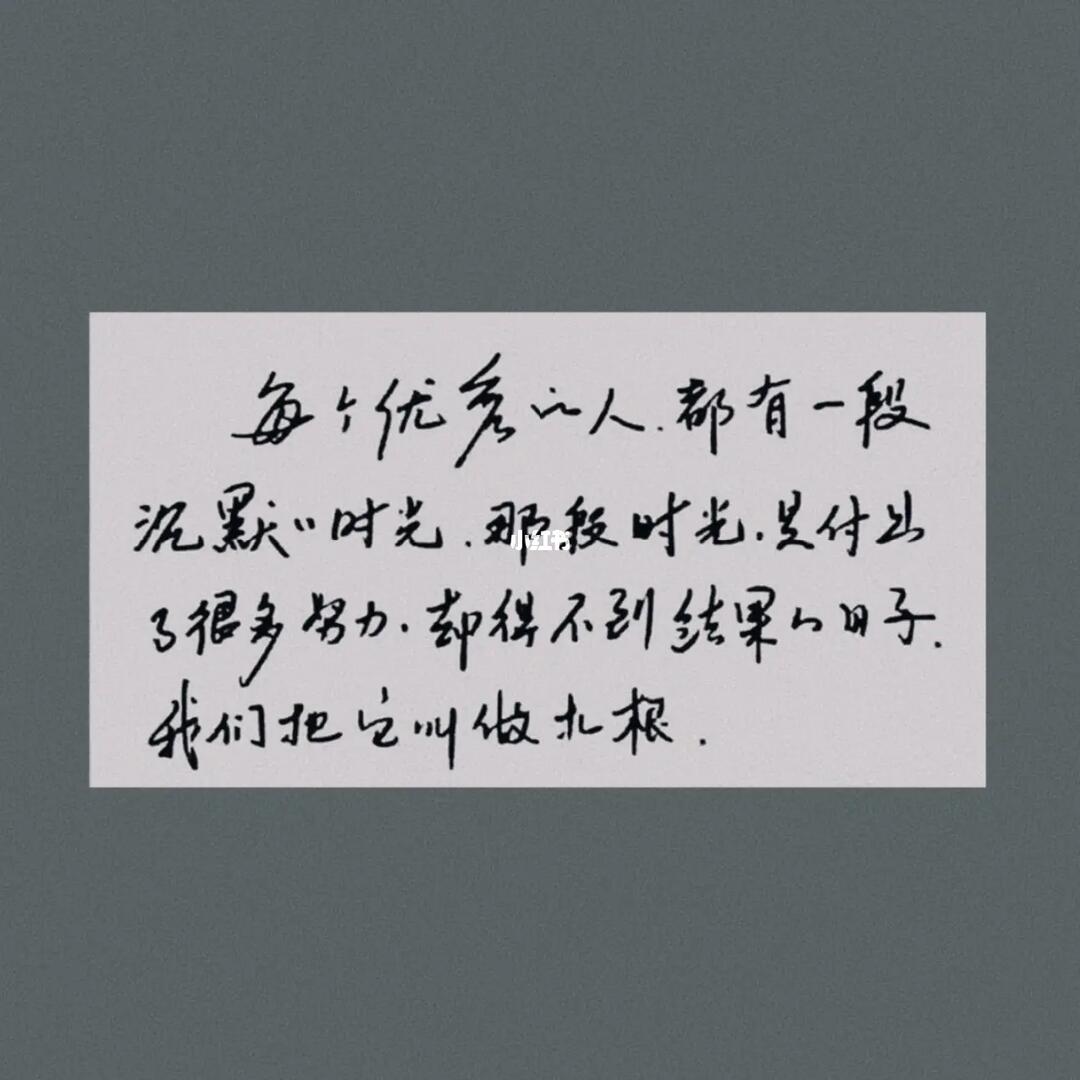 每个优秀的人.都有一段
沉默的时光.那段时光.是付出
了很多努力.却得不到结果的日子.
我们把它叫做扎根.
小红书